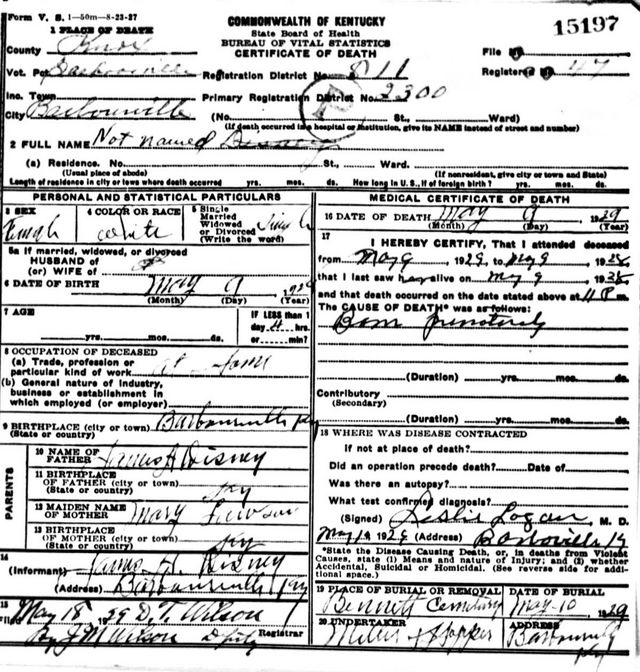 Form V. S. 1-50m-8-23-27
COMMONWEALTH OF KENTUCKY
State Board of Health
BUREAU OF VITAL STATISTICS
CERTIFICATE OF DEATH
15197
1 PLACE OF DEATH
County Knox
File No.
Vot. Pct Barbourville Registration District No. 811
Registered No. 47
Inc. Town
Primary Registration District No. 2300
City Barbourville (No. St., Ward)
(If death occurred in a hospital or institution, give its NAME instead of street and number)
2 FULL NAME Not named Disney
(a) Residence. No. St., Ward.
(Usual place of abode) (If nonresident, give city or town and State)
Length of residence in city or town where death occurred yrs. mos. ds. How long in U. S., if of foreign birth? yrs. mos. ds.
PERSONAL AND STATISTICAL PARTICULARS
3 SEX
4 COLOR OR RACE
white
5 Single
Married
Widowed
or Divorced
(Write the word)
5a If married, widowed, or divorced
HUSBAND of
(or) WIFE of
6 DATE OF BIRTH May 9 1929
(Month) (Day) (Year)
7 AGE
yrs. mos. ds.
IF LESS than 1
day 4 hrs.
or min?
8 OCCUPATION OF DECEASED
(a) Trade, profession or
particular kind of work at home
(b) General nature of industry,
business or establishment in
which employed (or employer)
9 BIRTHPLACE (city or town) Barbourville Ky
(State or country)
PARENTS
10 NAME OF
FATHER James H Disney
11 BIRTHPLACE
OF FATHER (city or town)
(State or country) Ky
12 MAIDEN NAME
OF MOTHER Mary
13 BIRTHPLACE
OF MOTHER (city or town)
(State or country) Ky
14
(Informant) James H. Disney
(Address) Barbourville Ky
15
Filed May 18 1929 D. T. Wilson
Registrar
By J M Wilson Dpty
MEDICAL CERTIFICATE OF DEATH
16 DATE OF DEATH May 9 1929
(Month) (Day) (Year)
17
I HEREBY CERTIFY, That I attended deceased
from May 9 1929, to My 9 1928
that I last saw h alive on my 9 1928
and that death occurred on the date stated above at 11 P m.
The CAUSE OF DEATH* was as follows:
Born
(Duration) yrs. mos. ds.
Contributory
(Secondary)
(Duration) yrs. mos. ds.
18 WHERE WAS DISEASE CONTRACTED
If not at place of death?
Did an operation precede death? Date of
Was there an autopsy?
What test confirmed diagnosis?
(Signed) Leslie Logan, M. D.
1929 (Address) Barbourville Ky
*State the Disease Causing Death, or, in deaths from Violent
Causes, state (1) Means and nature of Injury; and (2) whether
Accidental, Suicidal or Homicidal. (See reverse side for addi-
tional space.)
19 PLACE OF BURIAL OR REMOVAL DATE OF BURIAL
Bennett Cemetery May-10 1929
20 UNDERTAKER ADDRESS
Hopper Barbourville
Ky